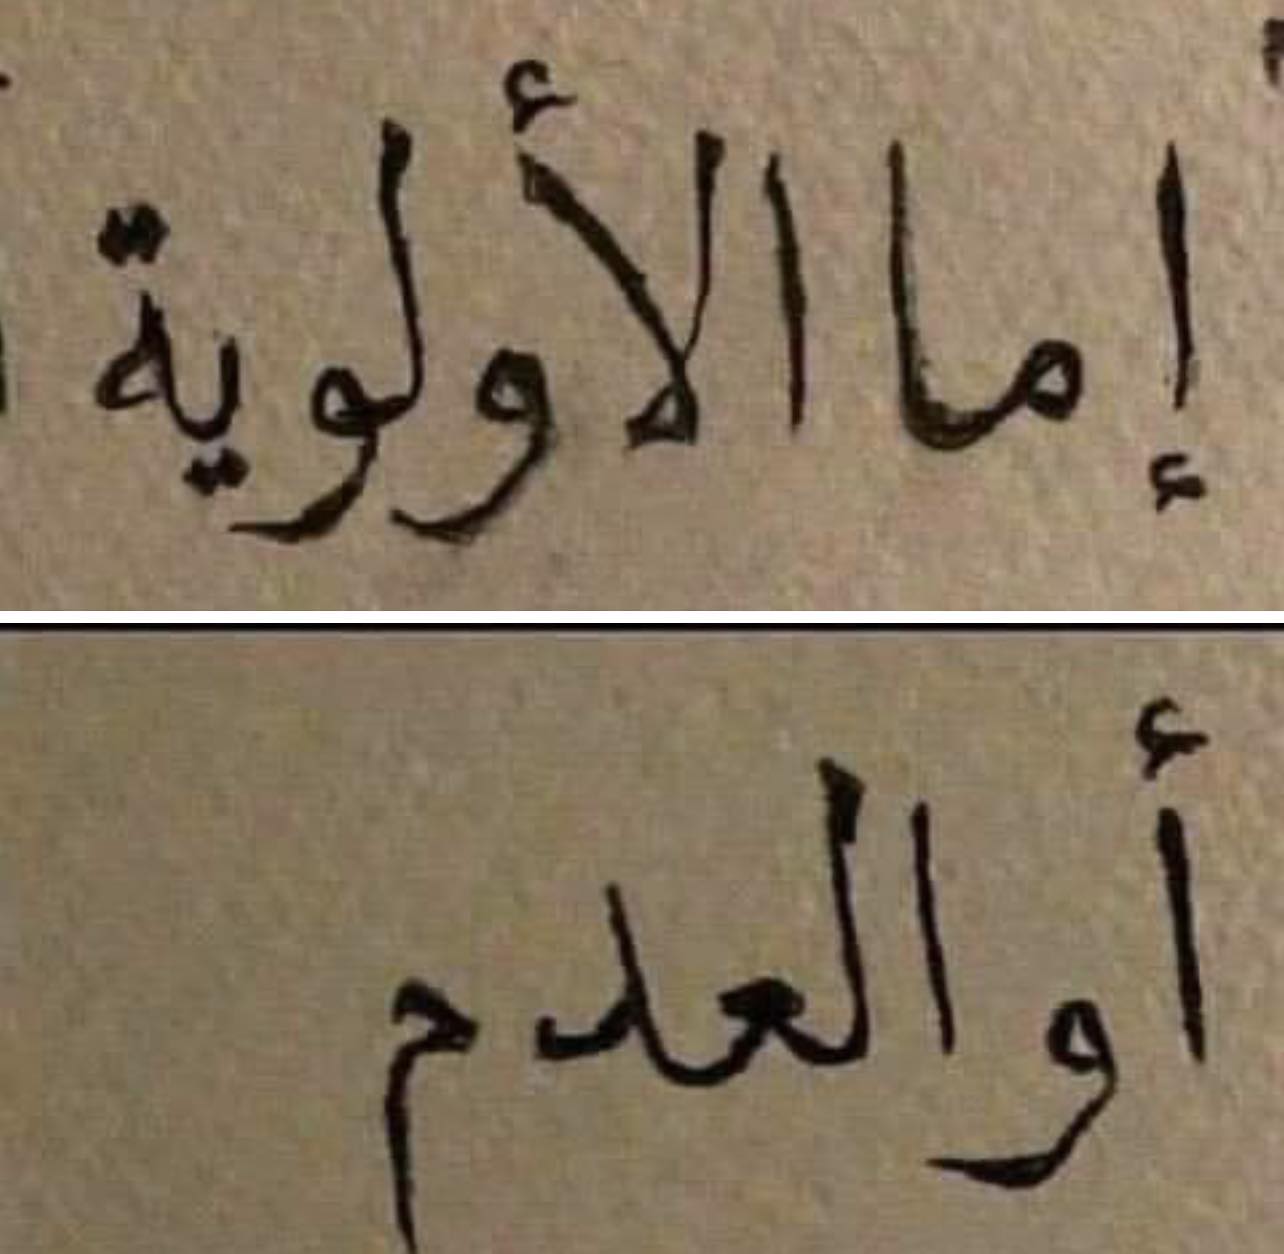 إما الأولوية
أو العدم